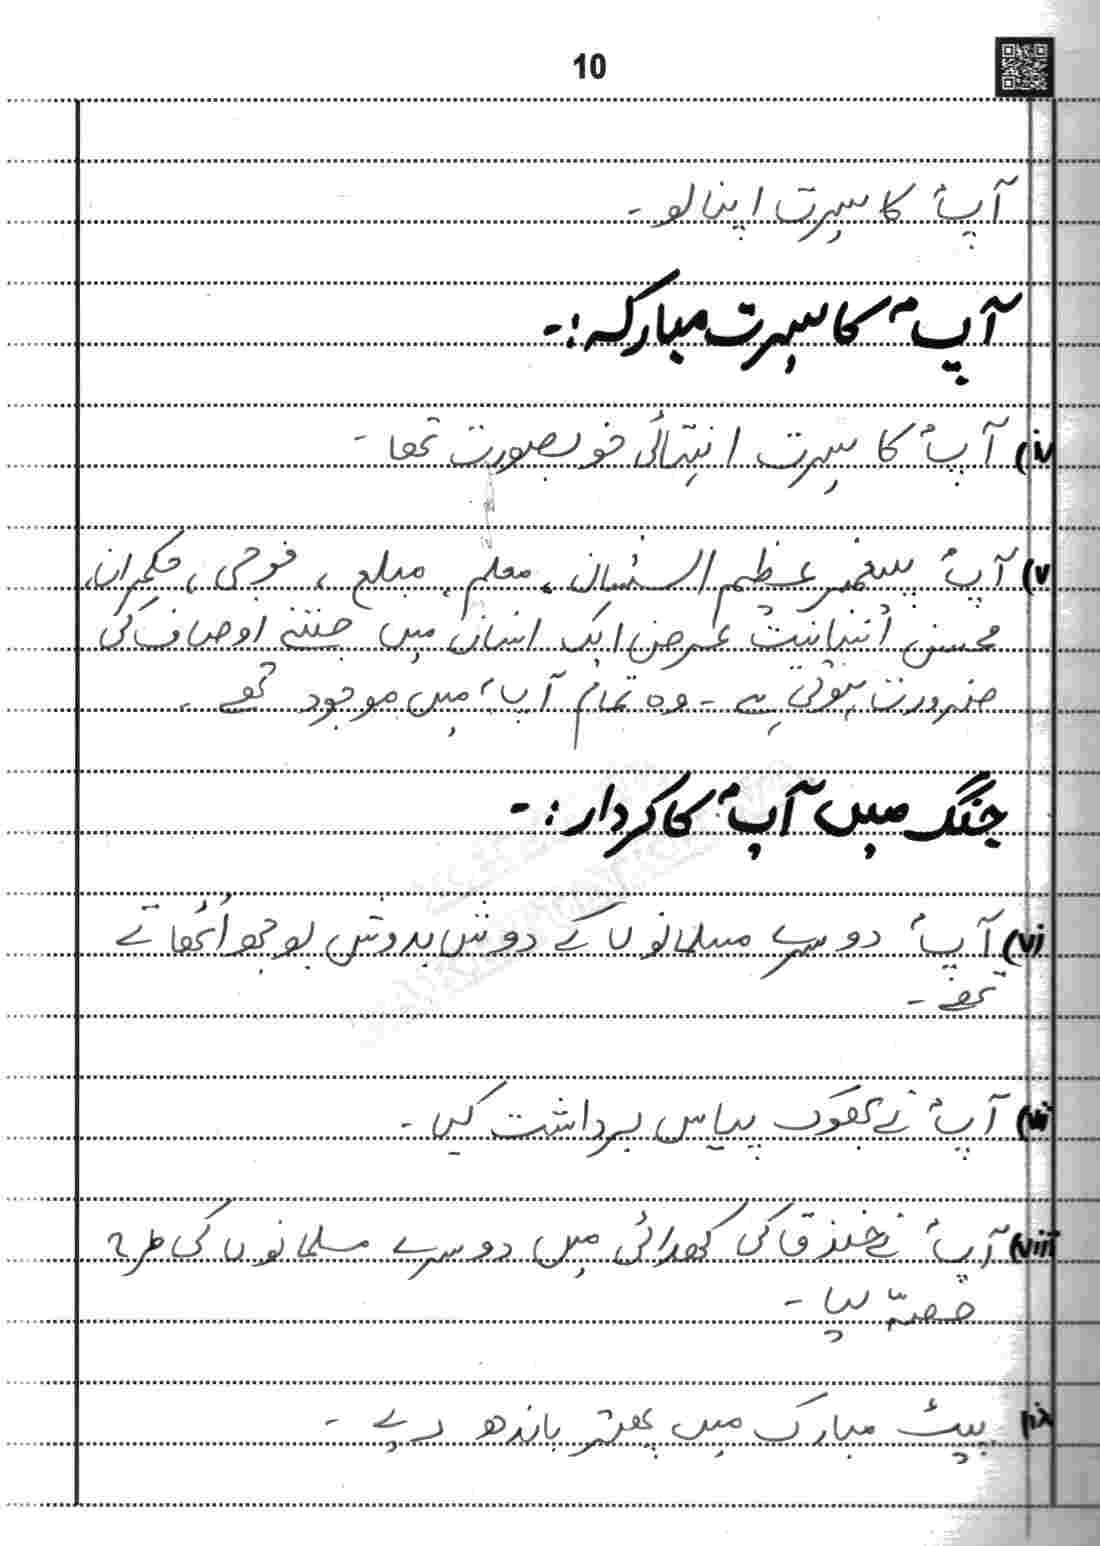 10
آپؐ کا سیرت اپنا لو ۔
آپؐ کا سیرت مبارکہ :-
(iv آپؐ کا سیرت انتہائی خوبصورت تھا ۔
(v آپؐ پیغمبر عظیم الشان ، معلم ، مبلغ ، فوجی ، حکمران ،
محسن انسانیت غرض ایک انسان میں جتنے اوصاف کی
ضرورت ہوتی ہے ۔ وہ تمام آپؐ میں موجود تھے ۔
جنگ میں آپؐ کا کردار :-
(vi آپؐ دوسرے مسلمانوں کے دوش بدوش بوجھ اُٹھاتے
تھے ۔
(vii آپؐ نے بھوک پیاس برداشت کیں ۔
(viii آپؐ نے خندق کی کھدائی میں دوسرے مسلمانوں کی طرح
حصّہ لیا ۔
(ix پیٹ مبارک میں پتھر باندھ دیے ۔